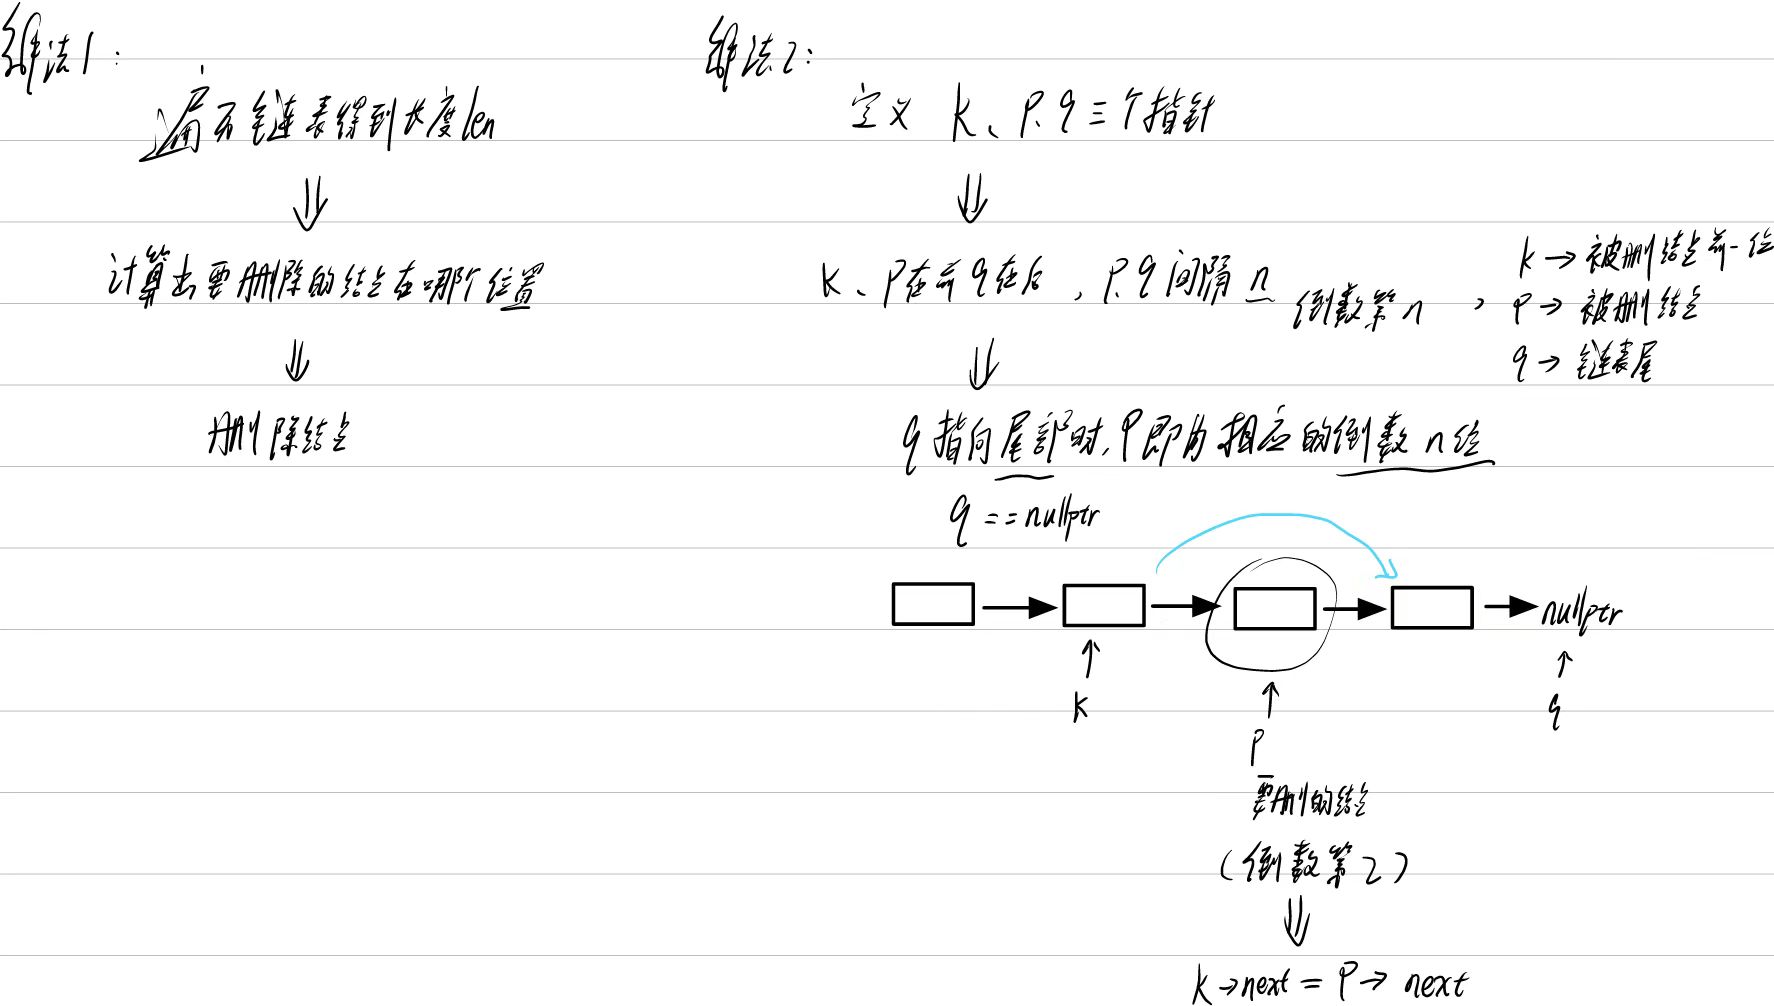 解法1:
遍历链表得到长度len
计算出要删除的结点在哪个位置
删除结点
解法2:
定义 k、p、q三个指针
k、p在前q在后,p、q间隔n 倒数第n,
k→被删结点前一位
p→被删结点
q→链表尾
q指向尾部时,p即为相应的倒数n位
q==nullptr
nullptr
k
q
p
要删的结点
(倒数第2)
k→next = p→next